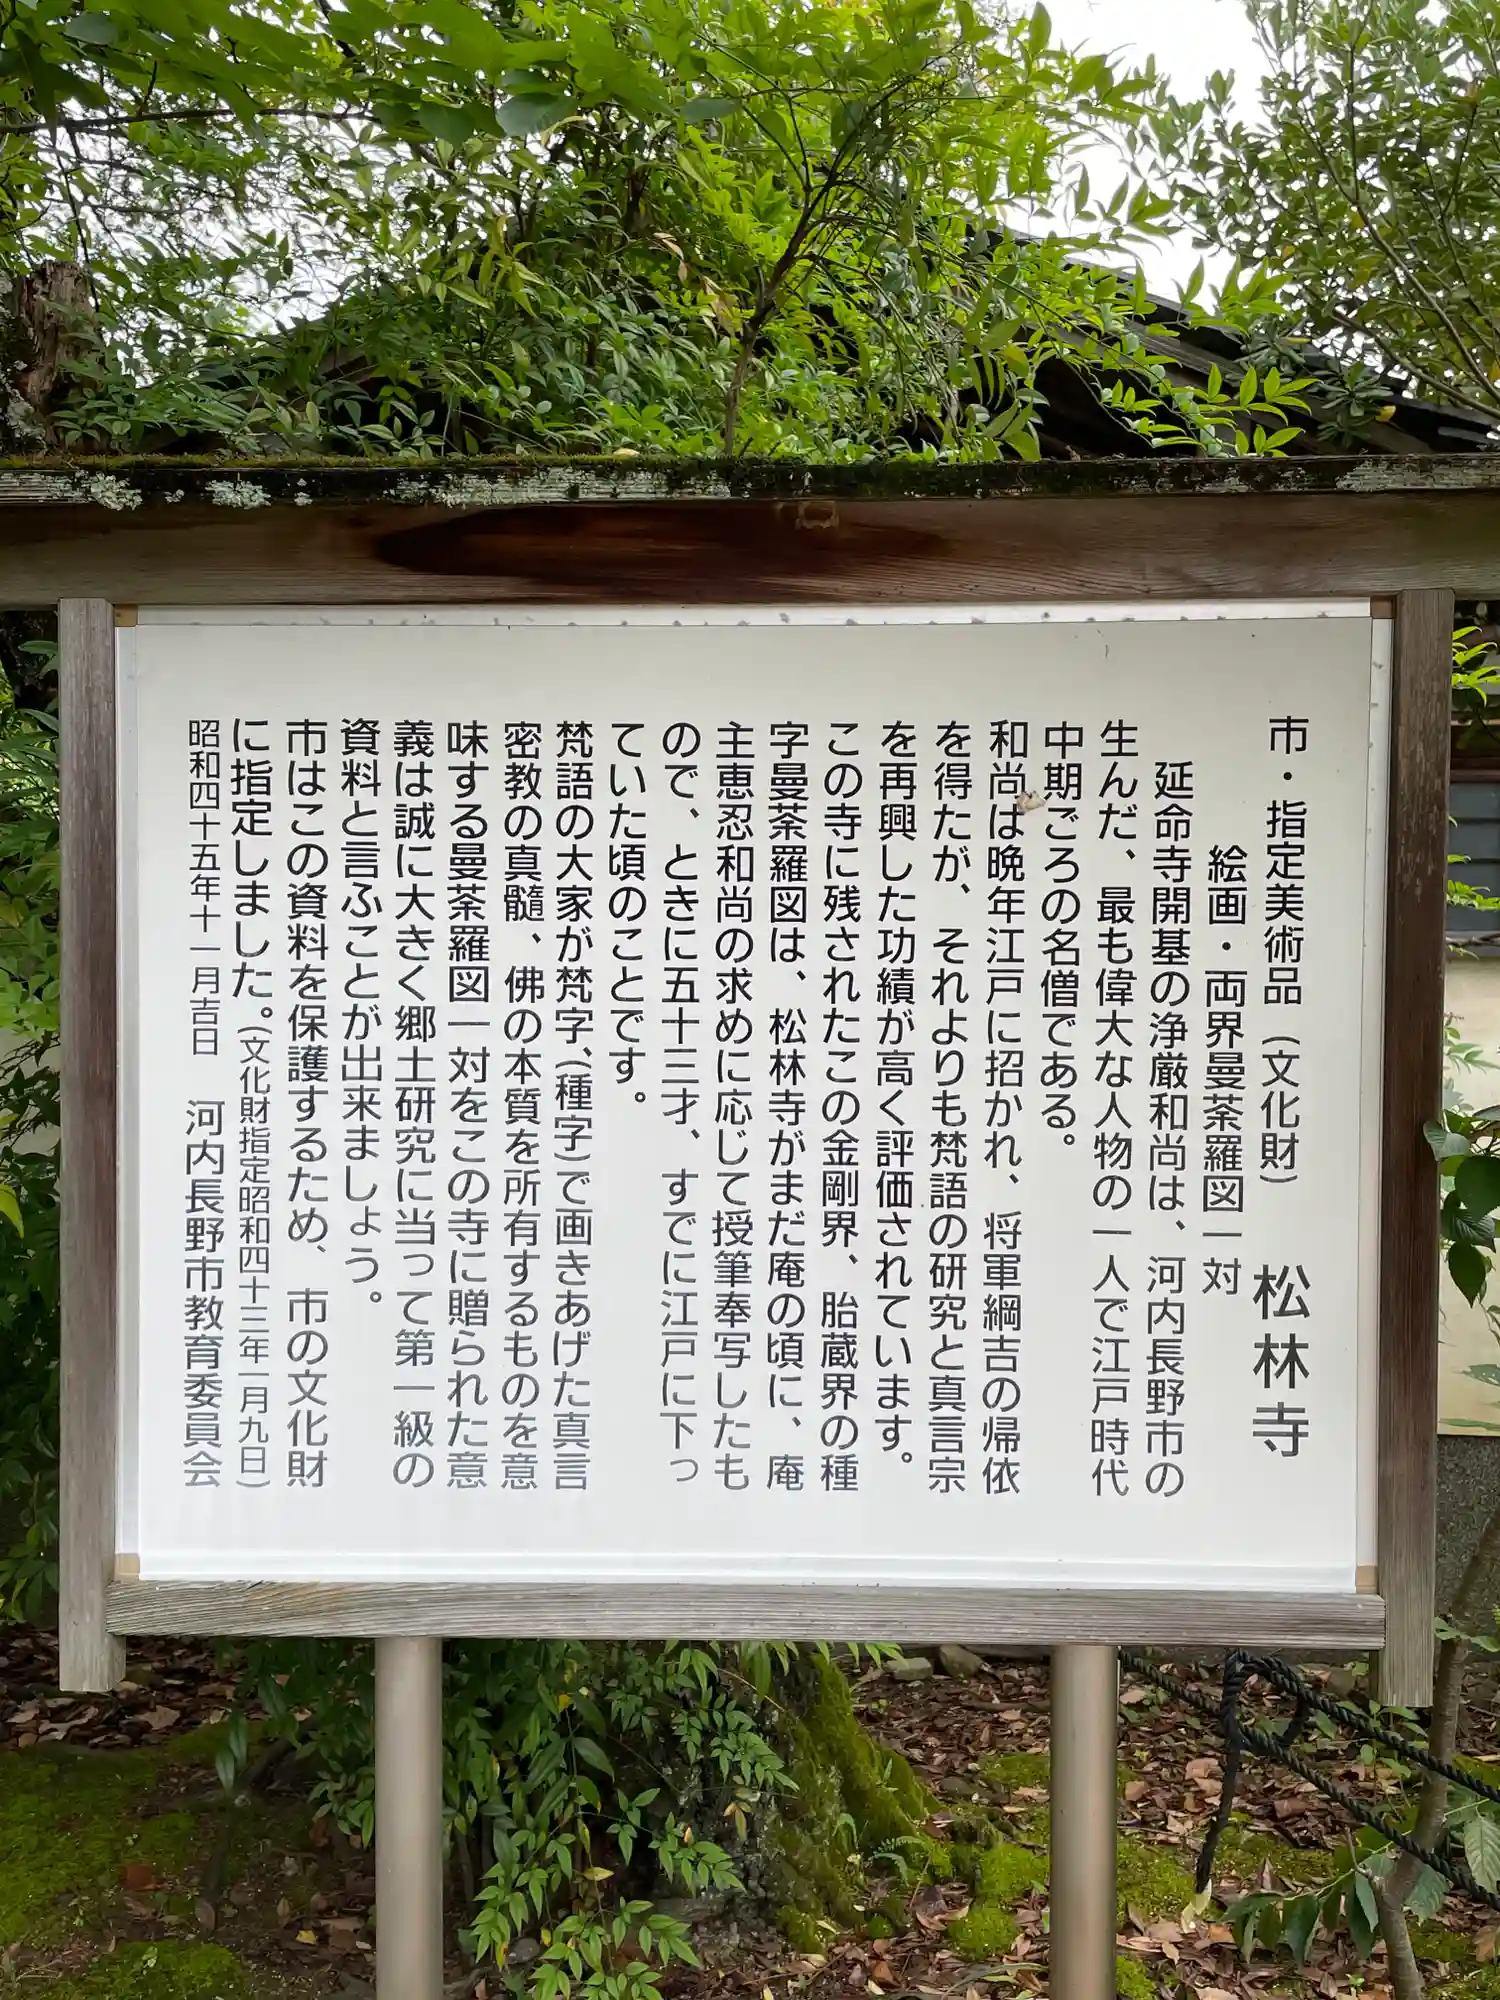 市・指定美術品（文化財）　松林寺
絵画・両界曼荼羅図一対
延命寺開基の浄厳和尚は、河内長野市の
生んだ、最も偉大な人物の一人で江戸時代
中期ごろの名僧である。
和尚は晩年江戸に招かれ、将軍綱吉の帰依
を得たが、それよりも梵語の研究と真言宗
を再興した功績が高く評価されています。
この寺に残されたこの金剛界、胎蔵界の種
字曼荼羅図は、松林寺がまだ庵の頃に、庵
主恵忍和尚の求めに応じて授筆奉写したも
ので、ときに五十三才、すでに江戸に下っ
ていた頃のことです。
梵語の大家が梵字、（種字）で画きあげた真言
密教の真髄、佛の本質を所有するものを意
味する曼荼羅図一対をこの寺に贈られた意
義は誠に大きく郷土研究に当って第一級の
資料と言ふことが出来ましょう。
市はこの資料を保護するため、市の文化財
に指定しました。（文化財指定昭和四十三年一月九日）
昭和四十五年十一月吉日　河内長野市教育委員会